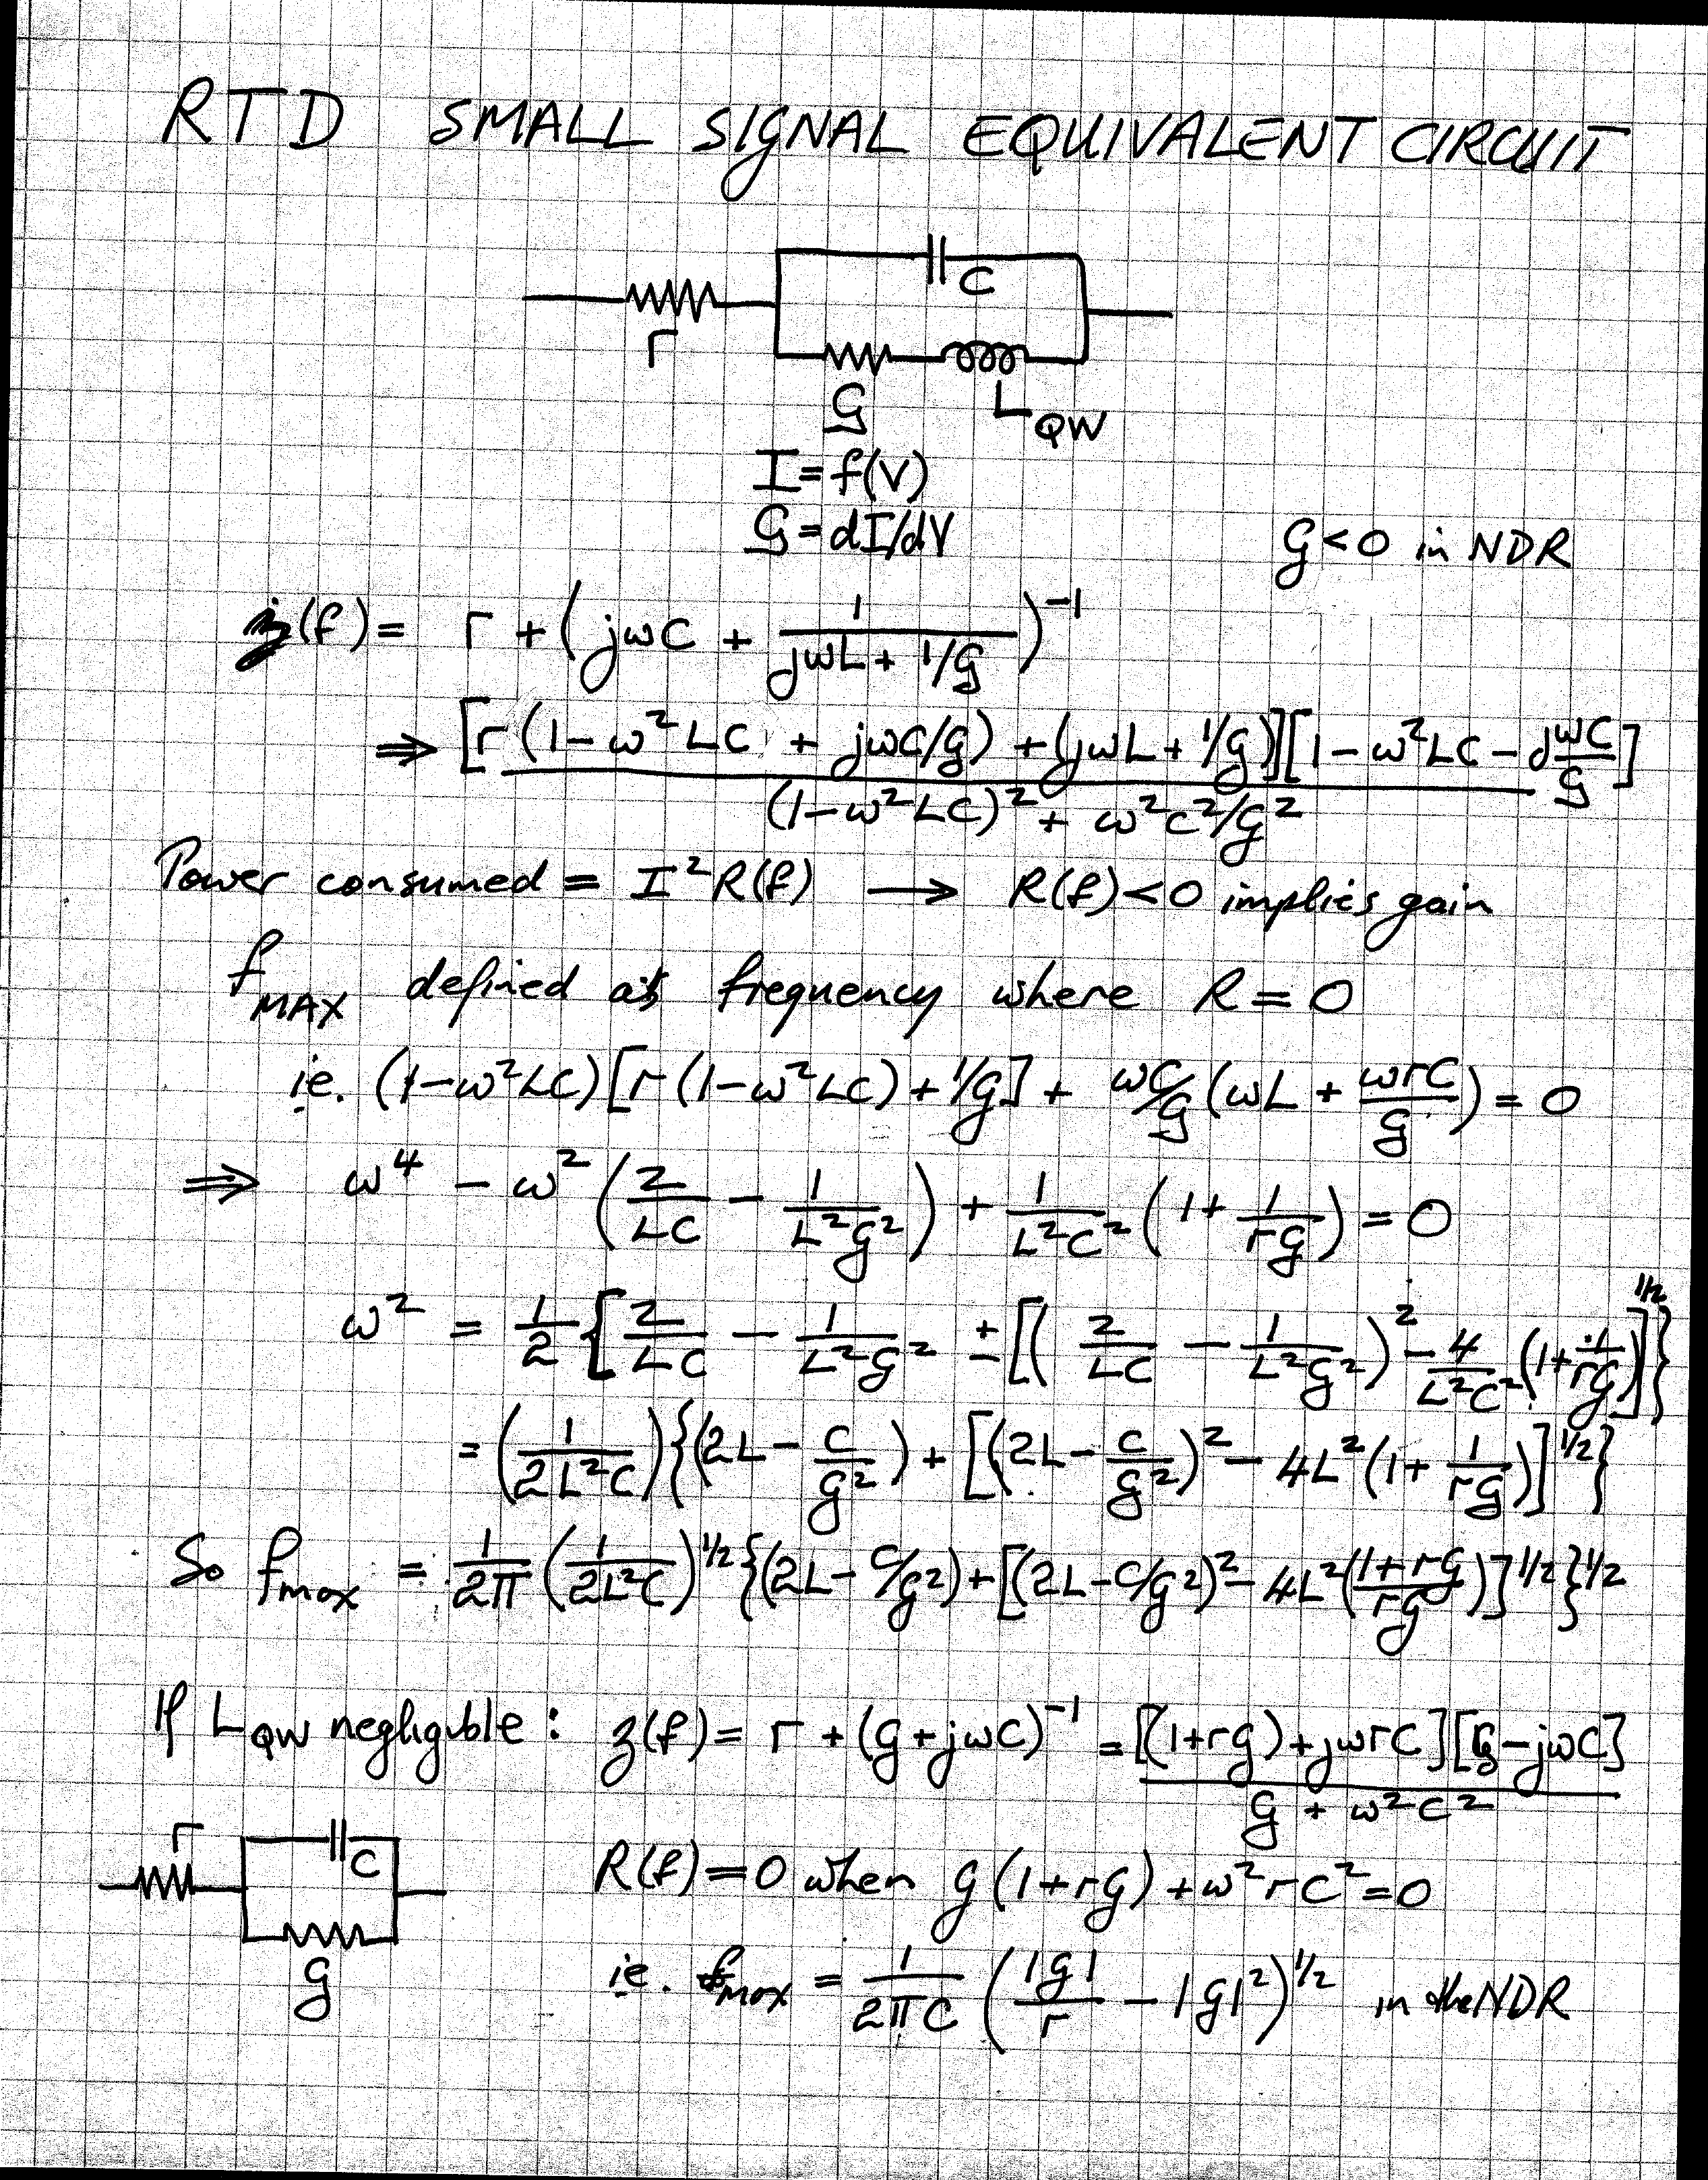 RTD SMALL SIGNAL EQUIVALENT CIRCUIT
C
r
G L_QW
I = f(V)
G = dI/dV G < 0 in NDR
z(f) = r + (jωC + 1/(jωL + 1/G))^-1
⇒ [r(1 - ω²LC + jωC/G) + (jωL + 1/G)][1 - ω²LC - jωC/G] / ((1 - ω²LC)² + ω²C²/G²)
Power consumed = I²R(f) → R(f) < 0 implies gain
f_MAX defined as frequency where R = 0
ie. (1 - ω²LC)[r(1 - ω²LC) + 1/G] + ωC/G (ωL + ωrC/G) = 0
⇒ ω⁴ - ω²(2/LC - 1/L²G²) + 1/L²C² (1 + 1/rG) = 0
ω² = 1/2 {2/LC - 1/L²G² ± [(2/LC - 1/L²G²)² - 4/L²C² (1 + 1/rG)]^1/2}
= (1/2L²C){(2L - C/G²) + [(2L - C/G²)² - 4L²(1 + 1/rG)]^1/2}
So f_max = 1/2π (1/2L²C)^1/2 {(2L - C/G²) + [(2L - C/G²)² - 4L²((1 + rG)/rG)]^1/2}^1/2
If L_QW negligible : z(f) = r + (G + jωC)^-1 = [(1 + rG) + jωrC][G - jωC] / (G + ω²C²)
r
C
R(f) = 0 when G(1 + rG) + ω²rC² = 0
G
ie. f_max = 1/2πC (|G|/r - |G|²)^1/2 in the NDR